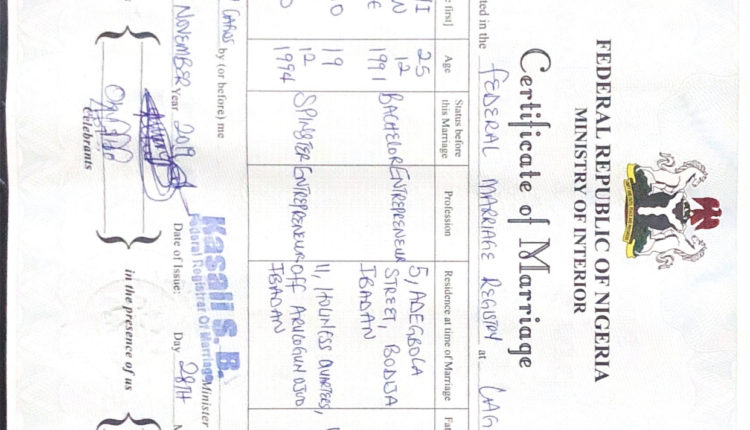 FEDERAL REPUBLIC OF NIGERIA
MINISTRY OF INTERIOR
Certificate of Marriage
ted in the FEDERAL MARRIAGE REGISTRY at LAG
e first] Age Status before this Marriage Profession Residence at time of Marriage Fat
I 25 BACHELOR ENTREPRENEUR 5, ADEGBOLA
N 12 STREET, BODIJA
E 1991 IBADAN
19 SPINSTER ENTREPRENEUR 11, HOLINESS QUARTERS,
O 12 OFF ARULOGUN OJOO
1994 IBADAN
by (or before) me
Kasali S. B.
Federal Registrar Of Marriage
Minister
NOVEMBER Year 2019 Date of Issue: Day 28TH M
Celebrants
in the presence of us